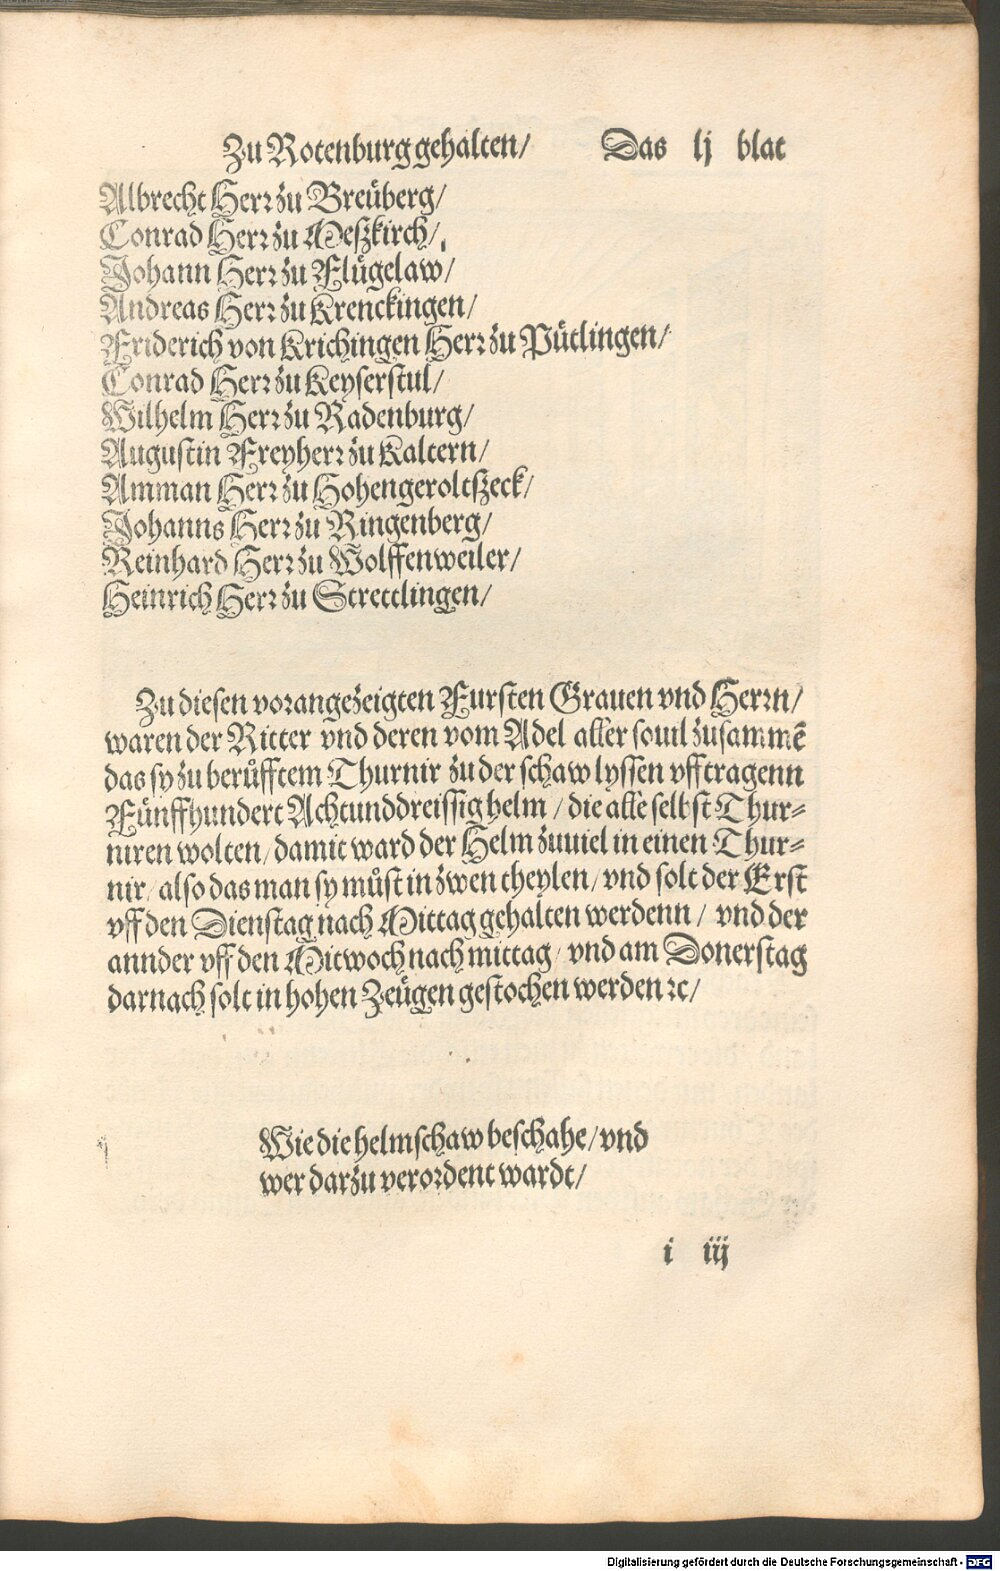 Zu Rotenburg gehalten/ Das lj blat
Albrecht Herr zu Breüberg/
Conrad Herr zu Meßkirch/
Johann Herr zu Flügelaw/
Andreas Herr zu Krenckingen/
Friderich von Krichingen Herr zu Pütlingen/
Conrad Herr zu Keyserstul/
Wilhelm Herr zu Radenburg/
Augustin Freyherr zu Kaltern/
Amman Herr zu Hohengeroltßeck/
Johanns Herr zu Ringenberg/
Reinhard Herr zu Wolffenweiler/
Heinrich Herr zu Strettlingen/
Zu diesen vorangezeigten Fursten Grauen vnd Herrn/
waren der Ritter vnd deren vom Adel aller souil zusammē
das sy zu berůfftem Thurnir zu der schaw lyssen vfftragenn
Fünffhundert Achtunddreissig helm/ die alle selbst Thur-
niren wolten/ damit ward der Helm zuuiel in einen Thur-
nir/ also das man sy můst in zwen theylen/ vnd solt der Erst
vff den Dienstag nach Mittag gehalten werdenn/ vnd der
annder vff den Mitwoch nach mittag/ vnd am Donerstag
darnach solt in hohen Zeügen gestochen werden ꝛc/
Wie die helmschaw beschahe/ vnd
wer darzu verordent wardt/
i iij
Digitalisierung gefördert durch die Deutsche Forschungsgemeinschaft - DFG